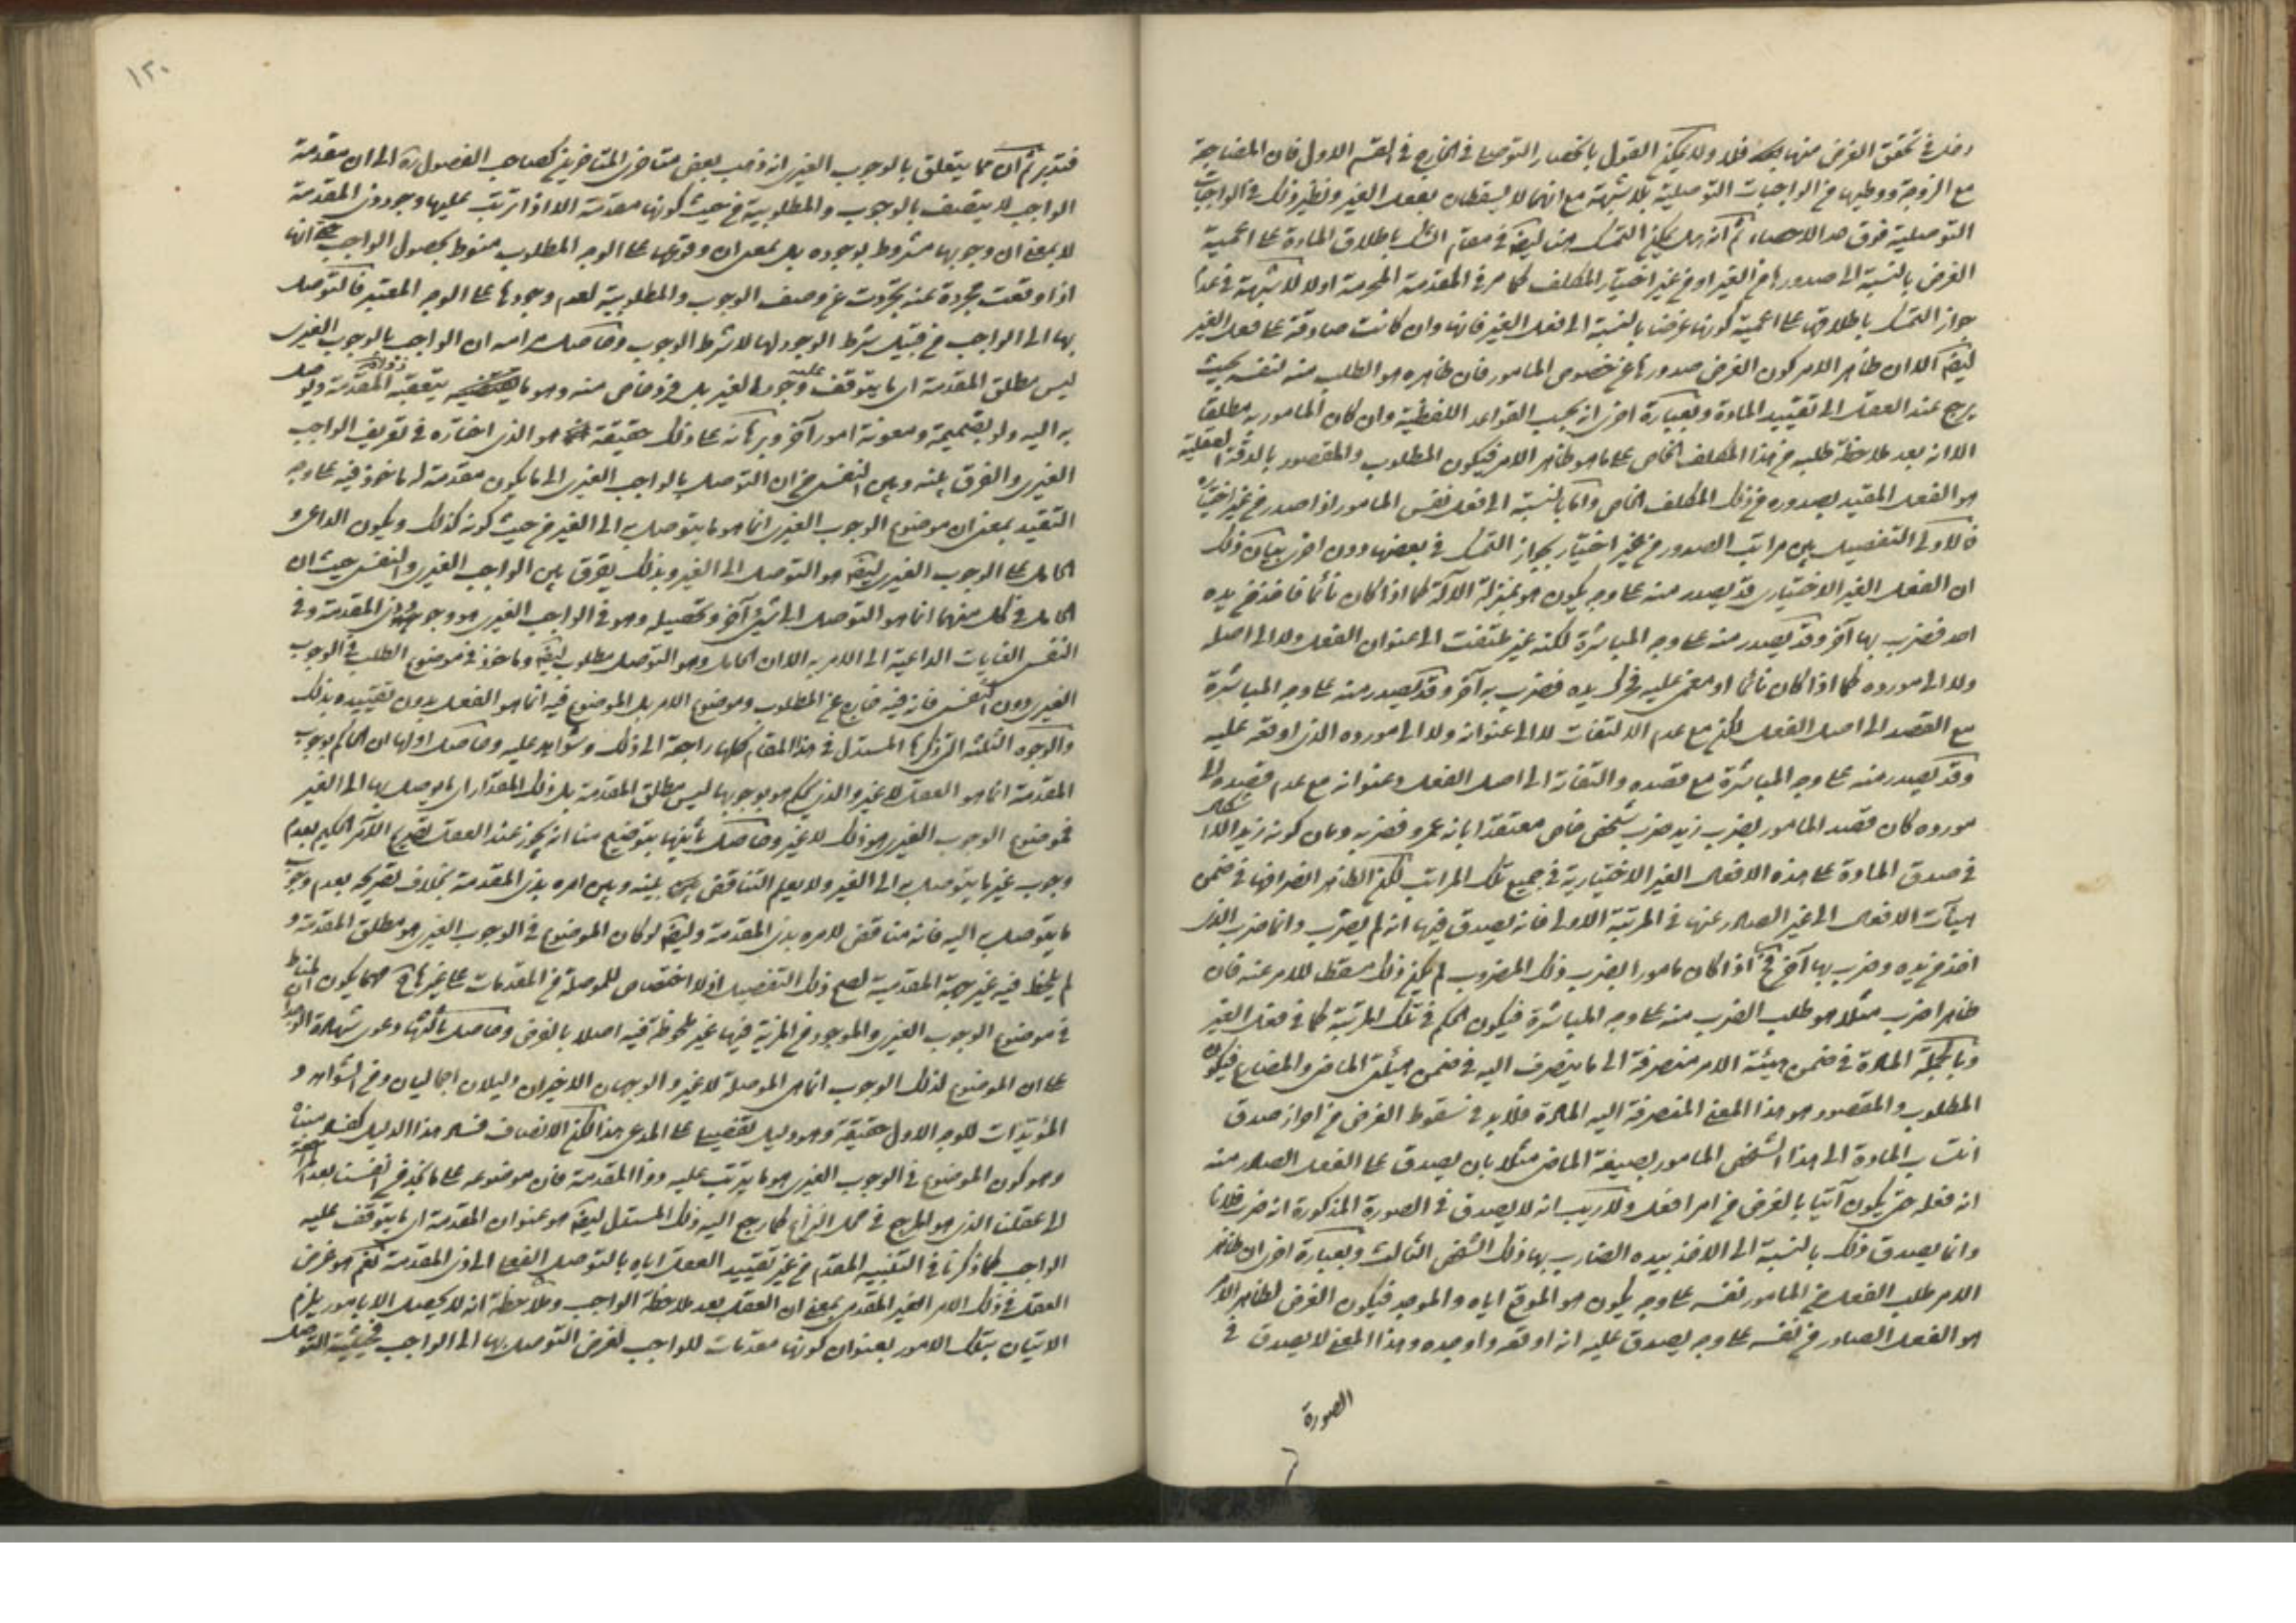 دخله في تحقق الغرض منها فلا ولا يمكن القول بانحصار التوصلي في الخارج في القسم الاول فان المضاجعة
مع الزوجة ووطيها من الواجبات التوصلية بلا شبهة مع انهما لا يسقطان بفعل الغير ونظير ذلك في الواجبات
التوصلية فوق حد الاحصاء ثم انه هل يمكن التمسك هنا ايضا في مقام الشك باطلاق المادة على اعمية
الغرض بالنسبة الى صدورها من الغير او من غير اختيار المكلف كما مر في المقدمة المحرمة اولا لا شبهة في عدم
جواز التمسك باطلاقها على اعمية كونها غرضا بالنسبة الى فعل الغير فانها وان كانت صادقة على فعل الغير
ايضا الا ان ظاهر الامر كون الغرض صدورها عن خصوص المامور فان ظاهره هو الطلب منه لنفسه بحيث
يرجع عند العقل الى تقييد المادة وبعبارة اخرى انه بحسب القواعد اللفظية وان كان المامور به مطلقا
الا انه بعد ملاحظة طلبه من هذا المكلف الخاص على ما هو ظاهر الامر فيكون المطلوب والمقصور بالدقة العقلية
هو الفعل المقيد بصدوره من ذلك المكلف الخاص واما بالنسبة الى فعل نفس المامور اذا صدر من غير اختياره
فالاولى التفصيل بين مراتب الصدور من غير اختيار بجواز التمسك في بعضها دون اخرى بيان ذلك
ان الفعل الغير الاختياري قد يصدر منه على وجه يكون هو بمنزلة الآلة كما اذا كان نائما فاخذ من يده
احد فضرب بها آخر وقد يصدر منه على وجه المباشرة لكنه غير ملتفت الى عنوان الفعل ولا الى اصله
ولا الى مورده كما اذا كان نائما او مغمى عليه فحرك يده فضرب به آخر وقد يصدر منه على وجه المباشرة
مع القصد الى اصل الفعل لكن مع عدم الالتفات لا الى عنوانه ولا الى مورده الذي اوقعه عليه
وقد يصدر منه على وجه المباشرة مع قصده والتفاته الى اصل الفعل وعنوانه مع عدم قصده الى
مورده كان قصد المامور بضرب زيد ضرب شخص خاص معتقدا بانه عمرو فضربه وبان كونه زيدا لا اشكال
في صدق المادة على هذه الافعال الغير الاختيارية في جميع تلك المراتب لكن الظاهر انصرافها في ضمن
هيآت الافعال الى غير الصادر عنها في المرتبة الاولى فانه يصدق فيها انه لم يضرب وانما ضرب الذي
اخذ من يده وضرب بها آخر فح اذا كان مامورا بضرب ذلك المضروب لم يكن ذلك مسقطا للامر عنه فان
ظاهر اضرب مثلا هو طلب الضرب منه على وجه المباشرة فيكون الحكم في تلك المرتبة كما في فعل الغير
وبالجملة المادة في ضمن هيئة الامر منصرفة الى ما ينصرف اليه في ضمن هيئتي الماضي والمضارع فيكون
المطلوب والمقصور هو هذا المعنى المنصرفة اليه المادة فلا بد في سقوط الغرض من احراز صدق
انتساب المادة الى هذا الشخص المامور بصيغة الماضي مثلا بان يصدق على الفعل الصادر منه
انه فعله حتى يكون آتيا بالغرض من امر افعل ولا ريب انه لا يصدق في الصورة المذكورة انه ضرب فلانا
وانما يصدق ذلك بالنسبة الى الاخذ بيده الضارب بها ذلك الشخص الثالث وبعبارة اخرى ان ظاهر
الامر طلب الفعل من المامور نفسه على وجه يكون هو الموقع اياه والموجد فيكون الغرض لظاهر الامر
هو الفعل الصادر من نفسه على وجه يصدق عليه انه اوقعه واوجده وهذا المعنى لا يصدق في
الصورة
١٣٠
فتدبر ثم ان مما يتعلق بالوجوب الغيري انه ذهب بعض متاخري المتاخرين كصاحب الفصول ره الى ان مقدمة
الواجب لا يتصف بالوجوب والمطلوبية من حيث كونها مقدمة الا اذا ترتب عليها وجود ذي المقدمة
لا بمعنى ان وجوبها مشروط بوجوده بل بمعنى ان وقوعها على الوجه المطلوب منوط بحصول الواجب حتى انها
اذا وقعت مجردة عنه تجردت عن وصف الوجوب والمطلوبية لعدم وجودها على الوجه المعتبر فالتوصل
بها الى الواجب من قبيل شرط الوجود لها لا شرط الوجوب وحاصل مرامه ان الواجب بالوجوب الغيري
ليس مطلق المقدمة اي ما يتوقف عليه وجود الغير بل فرد خاص منه وهو ما يتعقبه ذو المقدمة ويوصل
به اليه ولو بضميمة ومعونة امور آخر وبرهانه على ذلك حقيقة هو الذي اختاره في تعريف الواجب
الغيري والفرق بينه وبين النفسي من ان التوصل بالواجب الغيري الى ما يكون مقدمة له ماخوذ فيه على وجه
التقييد بمعنى ان موضوع الوجوب الغيري انما هو ما يتوصل به الى الغير من حيث كونه كذلك ويكون الداعي و
الحامل على الوجوب الغيري ايضا هو التوصل الى الغير وبذلك يفرق بين الواجب الغيري والنفسي حيث ان
الحامل في كل منهما انما هو التوصل الى شيئ آخر وتحصيله وهو في الواجب الغيري هو وجود ذي المقدمة وفي
النفسي الغايات الداعية الى الامر به الا ان الحامل وهو التوصل مطلوب ايضا وماخوذ في موضوع الطلب في الوجوب
الغيري دون النفسي فانه فيه خارج عن المطلوب وموضوع الامر بل الموضوع فيه انما هو الفعل بدون تقييده بذلك
والوجوه الثلثه التي ذكرها المستدل في هذا المقام كلها راجعة الى ذلك وشواهد عليه وحاصل اولها ان الحاكم بوجوب
المقدمة انما هو العقل لا غير والذي يحكم هو بوجوبها ليس مطلق المقدمة بل ذلك المقدار اي ما يوصل بها الى الغير
فموضوع الوجوب الغيري هو ذلك لا غير وحاصل ثانيها بتوضيح منا انه يجوز عند العقل تصريح الآمر الحكيم بعدم
وجوب غير ما يتوصل به الى الغير ولا يعلم التناقض بينه وبين امره بذي المقدمة بخلاف تصريحه بعدم وجوب
ما يتوصل به اليه فانه مناقض لامره بذي المقدمة وايضا لو كان الموضوع في الوجوب الغيري هو مطلق المقدمة و
لم يلحظ فيه غير جهة المقدمية لصح ذلك التفصيل اذ لا اختصاص للموصلة من المقدمات على غيرها فى مهما يكون المناط
في موضوع الوجوب الغيري والموجود من المزية فيها غير ملحوظة فيه اصلا بالفرض وحاصل ثالثها دعوى شهادة الوجدان
على ان الموضوع لذلك الوجوب انما هي الموصلة لا غير والوجهان الاخيران دليلان اجماليان ومن الشواهد و
المؤيدات للوجه الاول حقيقة وهو دليل تفصيلي على المدعى هذا لكن الانصاف فساد هذا الدليل كفساد مبناه
وهو كون الموضوع في الوجوب الغيري هو ما يترتب عليه ذو المقدمة فان موضوعه على ما نجد من انفسنا بعد المراجعة
الى عقلنا الذي هو المرجع في محل النزاع كما رجع اليه ذلك المستدل ايضا هو عنوان المقدمة اي ما يتوقف عليه
الواجب كما ذكرنا في التنبيه المقدم من غير تقييد العقل اياه بالتوصل الفعلي الى ذي المقدمة نعم هو غرض
العقل في ذلك الامر الغير المقدمي بمعنى ان العقل بعد ملاحظة الواجب وملاحظة انه لا يحصل الا بامور يلزم
الاتيان بتلك الامور بعنوان كونها مقدمات للواجب لغرض التوصل بها الى الواجب فحيثية التوصل